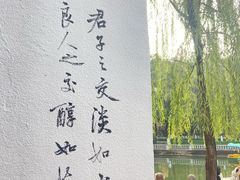 君子之交淡如
良人之交醇如